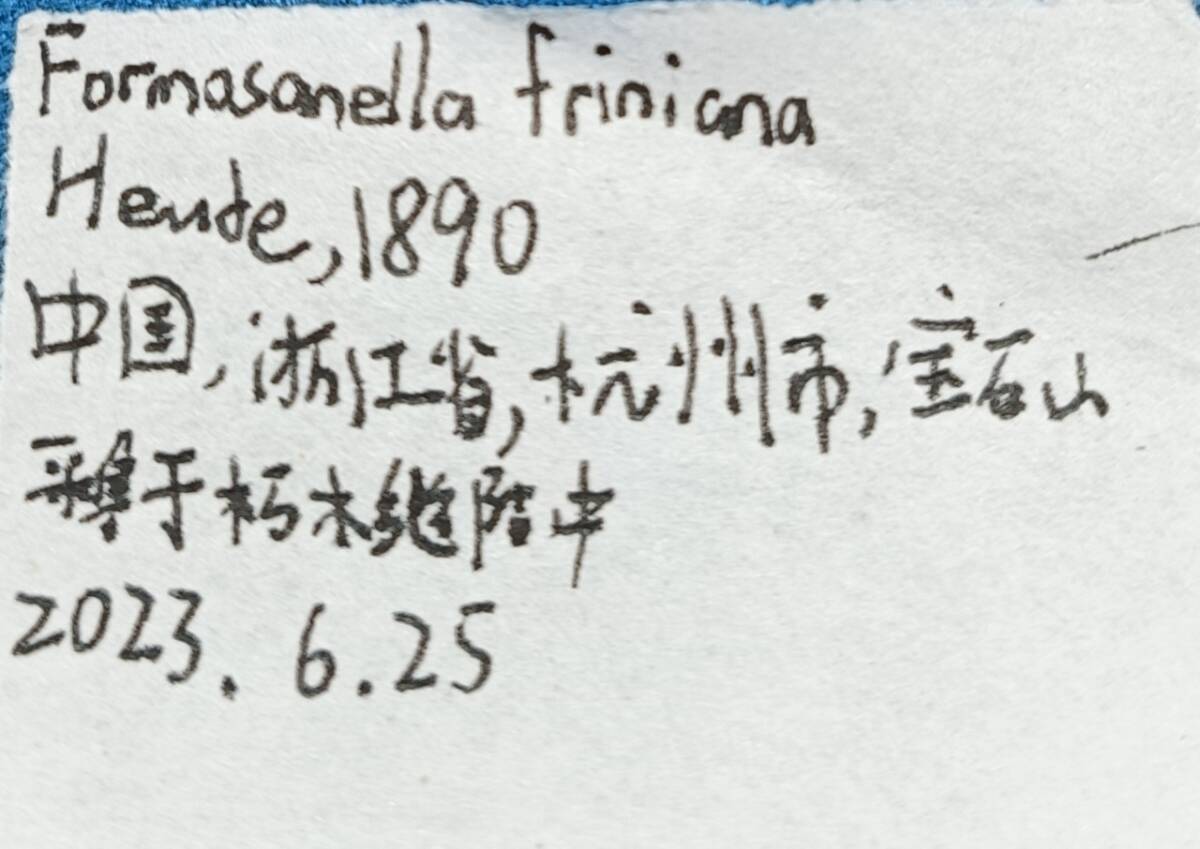 Formasanella friniana
Heude,1890
中国,浙江省,杭州市,宝石山
于朽木缝隙中
2023.6.25